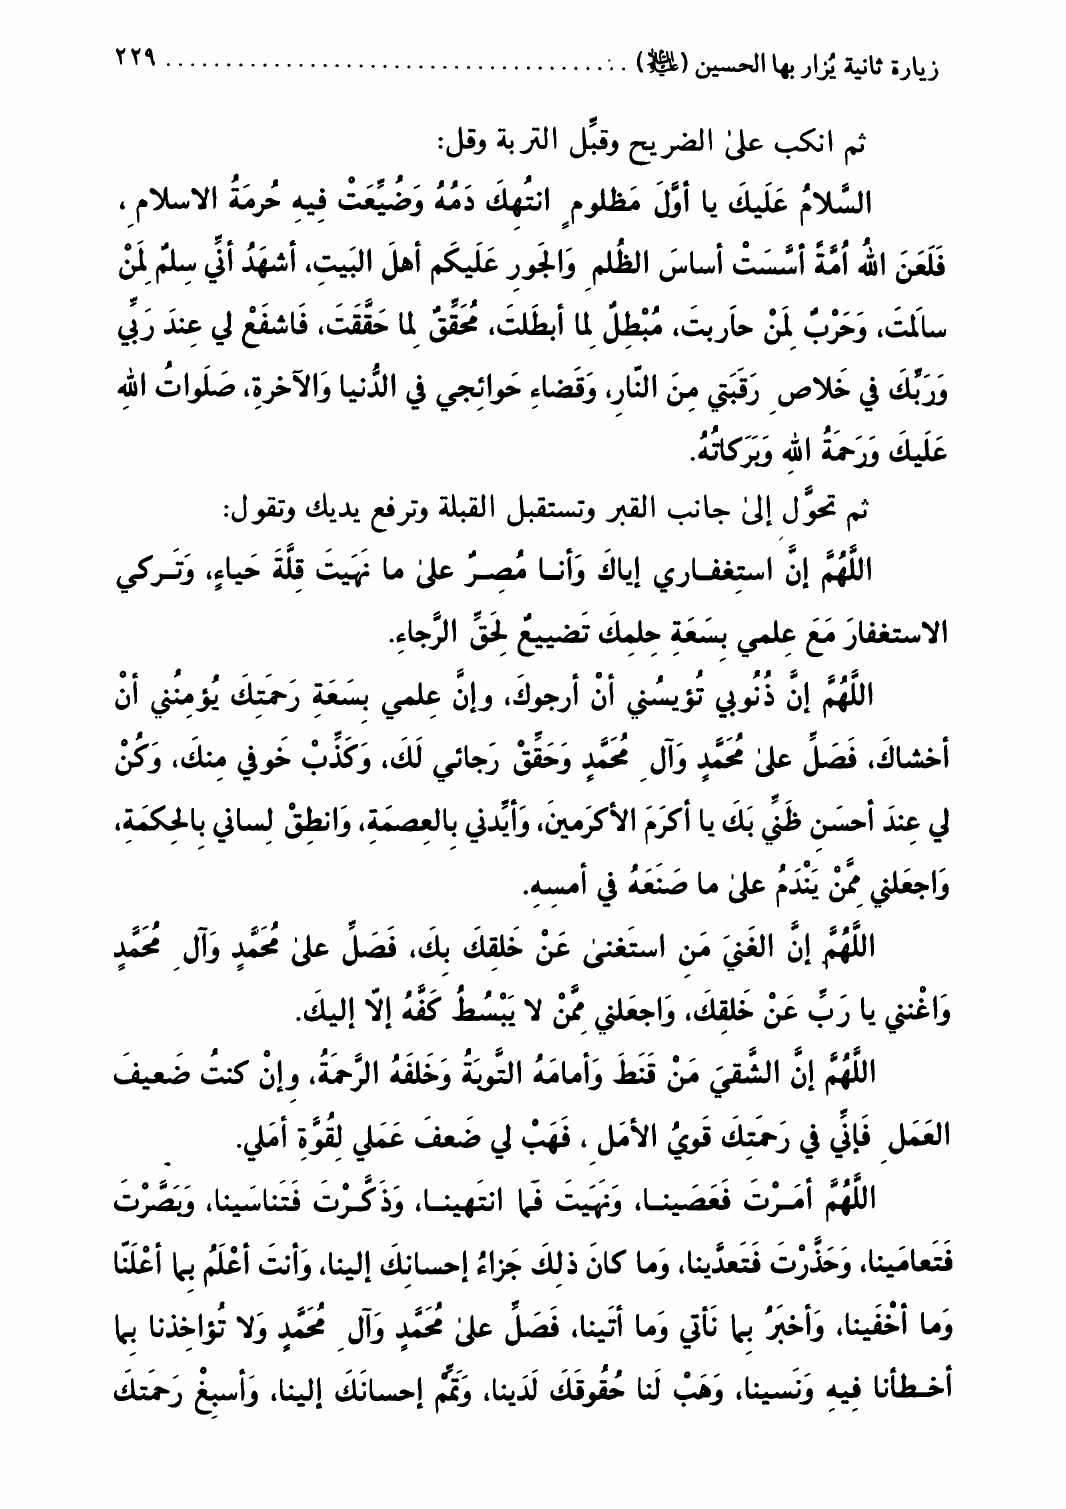 زيارة ثانية يُزار بها الحسين (عليه السلام) ........................................ ٢٢٩
ثم انكب علىٰ الضريح وقبِّل التربة وقل:
السَّلامُ عَلَيكَ يا أوَّلَ مَظلومٍ انتُهِكَ دَمُهُ وَضُيِّعَتْ فِيهِ حُرمَةُ الاسلامِ،
فَلَعَنَ اللهُ أُمَّةً أسَّسَتْ أساسَ الظُلمِ وَالجَورِ عَلَيكَم أهلَ البَيتِ، أشهَدُ أنِّي سِلمٌ لِمَنْ
سالَمتَ، وَحَرْبٌ لِمَنْ حاَربتَ، مُبْطِلٌ لِما أبطَلتَ، مُحَقِّقٌ لِما حَقَّقتَ، فَاشفَعْ لي عِندَ رَبِّي
وَرَبِّكَ في خَلاصِ رَقَبَتي مِنَ النّارِ، وَقَضاءِ حَوائِجي في الدُّنيا وَالآخرةِ، صَلَواتُ اللهِ
عَلَيكَ وَرَحمَةُ اللهِ وَبَرَكاتُهُ.
ثم تحوَّل إلىٰ جانب القبر وتستقبل القبلة وترفع يديك وتقول:
اللَّهُمَّ إنَّ استِغفـاري إياكَ وَأنـا مُصِـرٌ علىٰ ما نَهَيتَ قِلَّةَ حَياءٍ، وَتَـركي
الاستغفارَ مَعَ عِلمي بِسَعَةِ حِلمِكَ تَضييعٌ لِحَقِّ الرَّجاءِ.
اللَّهُمَّ إنَّ ذُنُوبي تُؤيسُني أنْ أرجوكَ، وإنَّ عِلمي بِسَعَةِ رَحمَتِكَ يُؤمِنُني أنْ
أخشاكَ، فَصَلِّ علىٰ مُحَمَّدٍ وَآلِ مُحَمَّدٍ وَحَقِّقْ رَجائي لَكَ، وَكَذِّبْ خَوفي مِنكَ، وَكُنْ
لي عِندَ أحسَنِ ظَنِّي بَكَ يا أكرَمَ الأكرَمينَ، وَأيِّدني بِالعِصمَةِ، وَانطِقْ لِساني بِالحِكمَةِ،
وَاجعَلني مِمَّنْ يَنْدَمُ علىٰ ما صَنَعَهُ في أمسِهِ.
اللَّهُمَّ إنَّ الغَنيَ مَنِ استَغنىٰ عَنْ خَلقِكَ بِكَ، فَصَلِّ علىٰ مُحَمَّدٍ وَآلِ مُحَمَّدٍ
وَاغْنني يا رَبِّ عَنْ خَلقِكَ، وَاجعَلني مِمَّنْ لا يَبْسُطُ كَفَّهُ إلّا إليكَ.
اللَّهُمَّ إنَّ الشَّقيَ مَنْ قَنَطَ وَأمامَهُ التَّوبَةُ وَخَلفَهُ الرَّحمَةُ، وإنْ كنتُ ضَعيفَ
العَمَلِ فَإنِّي في رَحمَتِكَ قَويُ الأمَلِ، فَهَبْ لي ضَعفَ عَمَلي لِقُوَّةِ أمَلي.
اللَّهُمَّ أمَـرْتَ فَعَصَينـا، وَنَهَيتَ فَما انتَهينـا، وَذَكَّـرْتَ فَتَناسَينا، وَبَصَّرْتَ
فَتَعامَينا، وَحَذَّرْتَ فَتَعدَّينا، وَما كانَ ذلِكَ جَزاءُ إحسانِكَ إلينا، وَأنتَ أعْلَمُ بِما أعْلَنّا
وَما أخْفَينا، وَأخبَرُ بِما نَأتي وَما أتَينا، فَصَلِّ علىٰ مُحَمَّدٍ وَآلِ مُحَمَّدٍ وَلا تُؤاخِذنا بِما
أخـطأنا فِيهِ وَنَسينا، وَهَبْ لَنا حُقُوقَكَ لَدَينا، وَتَمِّمْ إحسانَكَ إلينا، وَأسبِغْ رَحمَتكَ